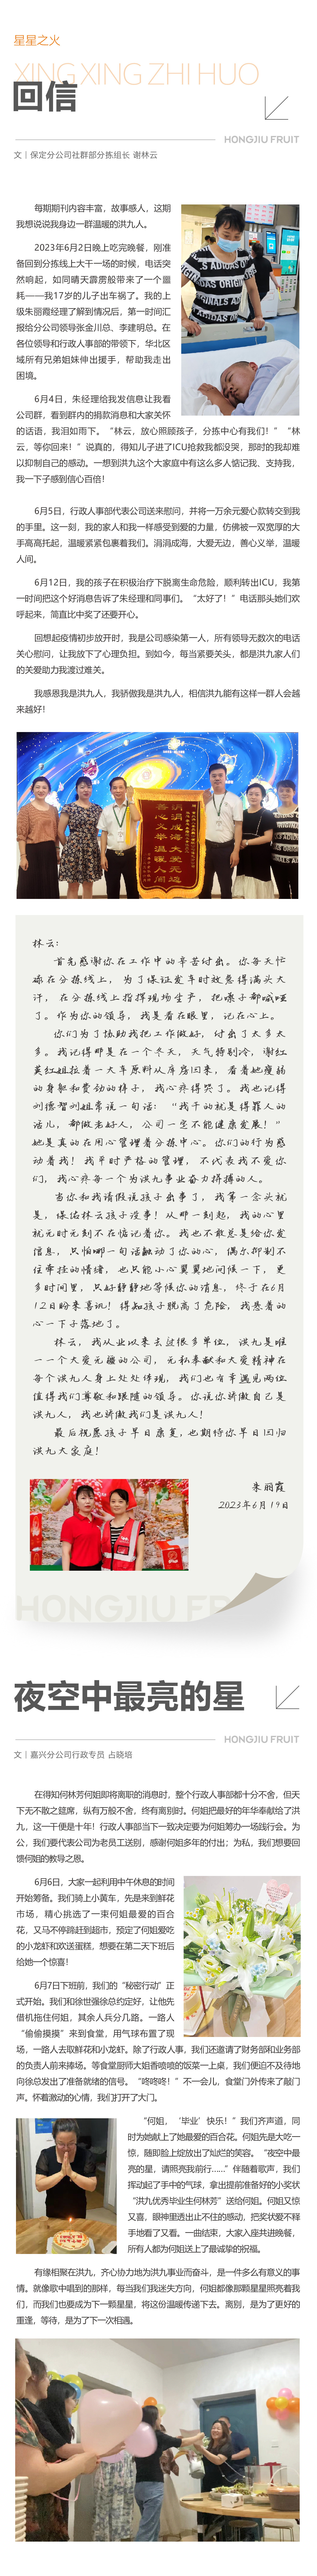 星星之火
XING XING ZHI HUO
回信
HONGJIU FRUIT
文｜保定分公司社群部分拣组长 谢林云
每期期刊内容丰富，故事感人，这期
我想说说我身边一群温暖的洪九人。
2023年6月2日晚上吃完晚餐，刚准
备回到分拣线上大干一场的时候，电话突
然响起，如同晴天霹雳般带来了一个噩
耗——我17岁的儿子出车祸了。我的上
级朱丽霞经理了解到情况后，第一时间汇
报给分公司领导张金川总、李建明总。在
各位领导和行政人事部的带领下，华北区
域所有兄弟姐妹伸出援手，帮助我走出
困境。
6月4日，朱经理给我发信息让我看
公司群，看到群内的捐款消息和大家关怀
的话语，我泪如雨下。“林云，放心照顾孩子，分拣中心有我们！”“林
云，等你回来！”说真的，得知儿子进了ICU抢救我都没哭，那时的我却难
以抑制自己的感动。一想到洪九这个大家庭中有这么多人惦记我、支持我，
我一下子感到信心百倍！
6月5日，行政人事部代表公司送来慰问，并将一万余元爱心款转交到我
的手里。这一刻，我的家人和我一样感受到爱的力量，仿佛被一双宽厚的大
手高高托起，温暖紧紧包裹着我们。涓涓成海，大爱无边，善心义举，温暖
人间。
6月12日，我的孩子在积极治疗下脱离生命危险，顺利转出ICU，我第
一时间把这个好消息告诉了朱经理和同事们。“太好了！”电话那头她们欢
呼起来，简直比中奖了还要开心。
回想起疫情初步放开时，我是公司感染第一人，所有领导无数次的电话
关心慰问，让我放下了心理负担。到如今，每当紧要关头，都是洪九家人们
的关爱助力我渡过难关。
我感恩我是洪九人，我骄傲我是洪九人，相信洪九能有这样一群人会越
来越好！
涓涓成海大爱无边
善心义举温暖人间
林云：
首先感谢你在工作中的辛苦付出。你每天忙
碌在分拣线上，为了保证发车时效急得满头大
汗，在分拣线上指挥现场生产，把嗓子都喊哑
了。作为你的领导，我是看在眼里，记在心上。
你们为了协助我把工作做好，付出了太多太
多。我记得那是在一个冬天，天气特别冷，谢红
英红姐拉着一大车原料从库房回来，看着她瘦弱
的身躯和费劲的样子，我心疼得哭了。我也记得
刘德智刘姐常说一句话：“我干的就是得罪人的
活儿，都做老好人，公司一定不能健康发展！”
她是真的在用心管理着分拣中心。你们的行为感
动着我！我平时严格的管理，不代表我不爱你
们，我心疼每一个为洪九事业奋力拼搏的人。
当你和我请假说孩子出事了，我第一念头就
是，保佑林云孩子没事！从那一刻起，我的心里
就无时无刻不在惦记着你。我也不敢总是给你发
信息，只怕哪一句话触动了你的心，偶尔抑制不
住牵挂的情绪，也只能小心翼翼地问候一下，更
多时间里，只好静静地等候你的消息，终于在6月
12日盼来喜讯！得知孩子脱离了危险，我悬着的
心一下子落地了。
林云，我从业以来去过很多单位，洪九是唯
一一个大爱无疆的公司，无私奉献和大爱精神在
每个洪九人身上处处体现，我们也有幸遇见两位
值得我们尊敬和跟随的领导。你说你骄傲自己是
洪九人，我也骄傲我们是洪九人！
最后祝愿孩子早日康复，也期待你早日回归
洪九大家庭！
朱丽霞
2023年6月19日
HONGJIU FR
夜空中最亮的星
HONGJIU FRUIT
文｜嘉兴分公司行政专员 占晓培
在得知何林芳何姐即将离职的消息时，整个行政人事部都十分不舍，但天
下无不散之筵席，纵有万般不舍，终有离别时。何姐把最好的年华奉献给了洪
九，这一干便是十年！行政人事部当下一致决定要为何姐筹办一场践行会。为
公，我们要代表公司为老员工送别，感谢何姐多年的付出；为私，我们想要回
馈何姐的教导之恩。
6月6日，大家一起利用中午休息的时间
开始筹备。我们骑上小黄车，先是来到鲜花
市场，精心挑选了一束何姐最爱的百合
花，又马不停蹄赶到超市，预定了何姐爱吃
的小龙虾和欢送蛋糕，想要在第二天下班后
给她一个惊喜！
6月7日下班前，我们的“秘密行动”正
式开始。我们和徐世强徐总约定好，让他先
借机拖住何姐，其余人兵分几路。一路人
“偷偷摸摸”来到食堂，用气球布置了现
场，一路人去取鲜花和小龙虾。除了行政人事，我们还邀请了财务部和业务部
的负责人前来捧场。等食堂厨师大姐香喷喷的饭菜一上桌，我们便迫不及待地
向徐总发出了准备就绪的信号。“咚咚咚！”不一会儿，食堂门外传来了敲门
声。怀着激动的心情，我们打开了大门。
“何姐，‘毕业’快乐！”我们齐声道，同
时为她献上了她最爱的百合花。何姐先是大吃一
惊，随即脸上绽放出了灿烂的笑容。“夜空中最
亮的星，请照亮我前行......”伴随着歌声，我们
挥动起了手中的气球，拿出提前准备好的小奖状
“洪九优秀毕业生何林芳”送给何姐。何姐又惊
又喜，眼神里透出止不住的感动，把奖状爱不释
手地看了又看。一曲结束，大家入座共进晚餐，
所有人都为何姐送上了最诚挚的祝福。
有缘相聚在洪九，齐心协力地为洪九事业而奋斗，是一件多么有意义的事
情。就像歌中唱到的那样，每当我们我迷失方向，何姐都像那颗星星照亮着我
们，而我们也要成为下一颗星星，将这份温暖传递下去。离别，是为了更好的
重逢，等待，是为了下一次相遇。